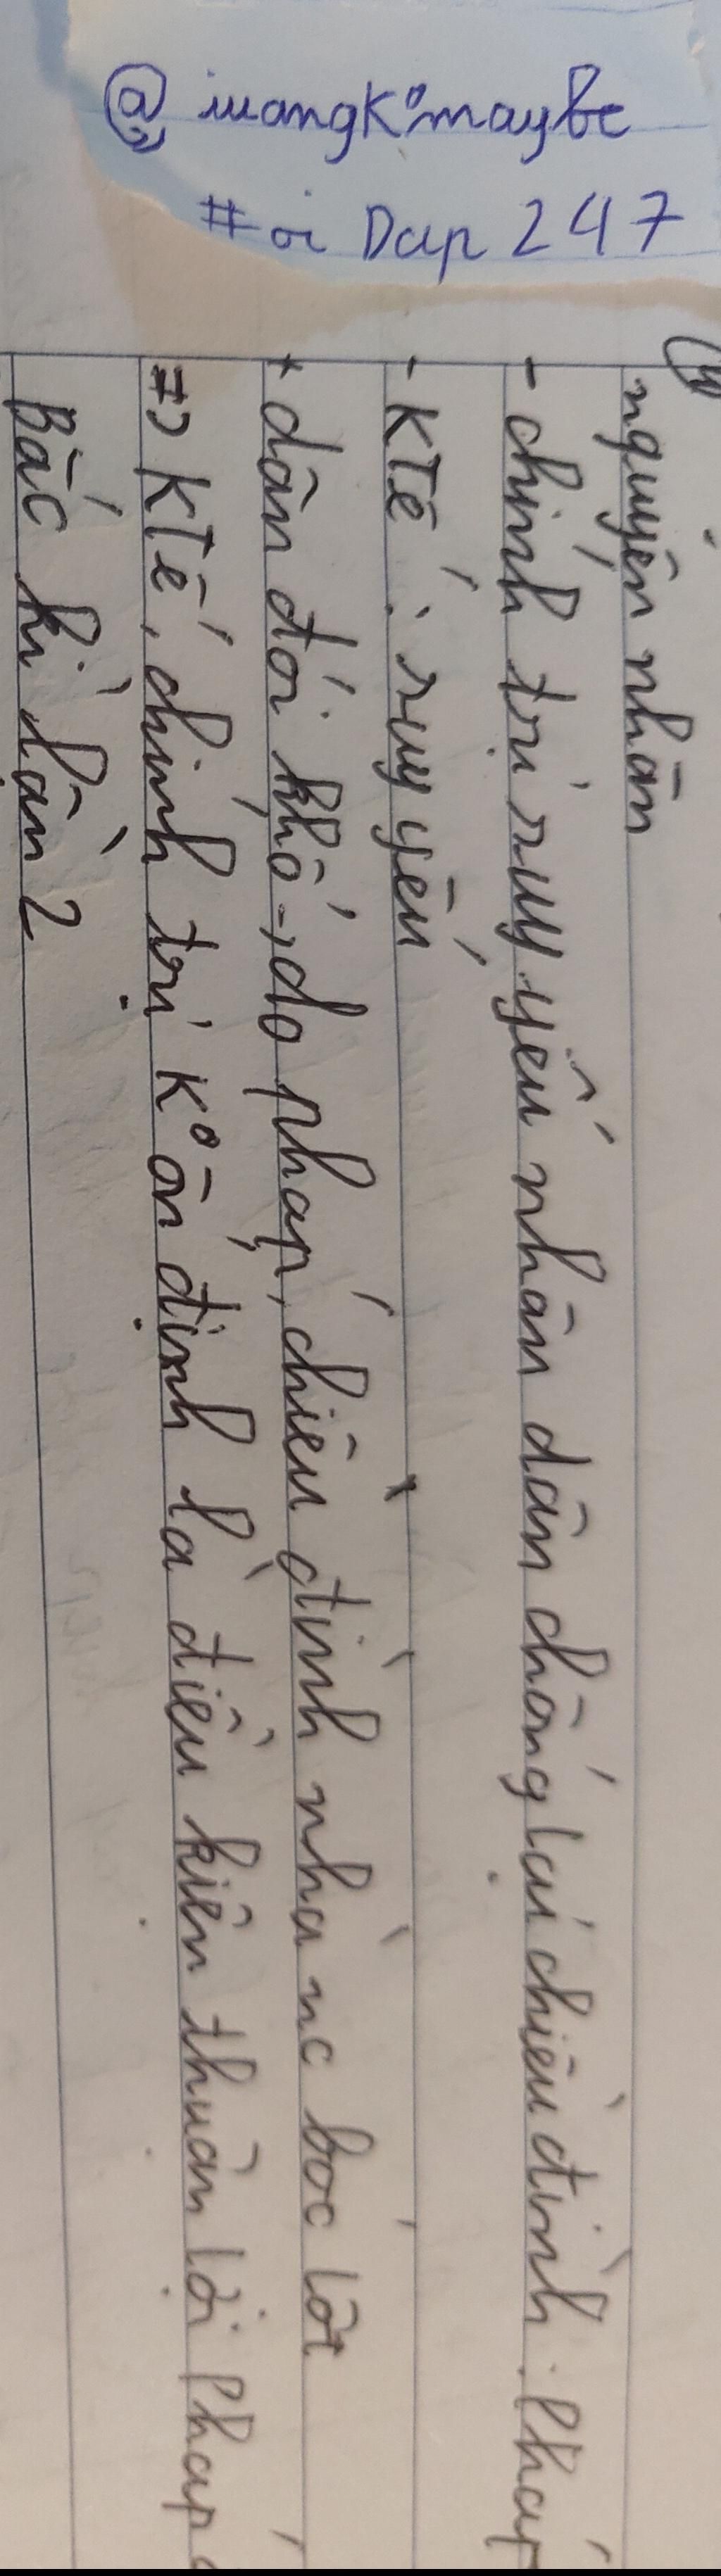 @ iuangKomaybe
#oi Dap 247
nguyên nhân
- chính trị suy yếu nhân dân chống lại chiều đình. Pháp
- KTế : suy yếu
+ dân đói khổ -, do pháp, chiều đình nhà nc boc lột
=> KTế, chính trị Ko ổn định là điều kiện thuận lợi Pháp
Bắc kì lần 2